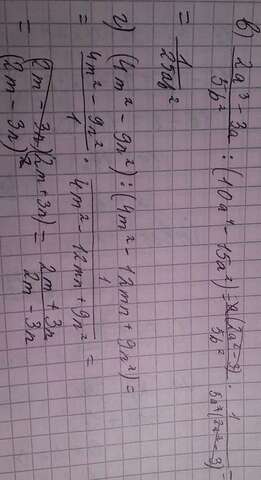 в) (2a³ - 3a)/(5b²) : (10a⁴ - 15a²) = a(2a² - 3)/(5b²) · 1/(5a²(2a² - 3)) =
= 1/(25ab²)
г) (4m² - 9n²) : (4m² - 12mn + 9n²) =
= (4m² - 9n²)/1 · 1/(4m² - 12mn + 9n²) =
= (2m - 3n)(2m + 3n)/(2m - 3n)² = (2m + 3n)/(2m - 3n)